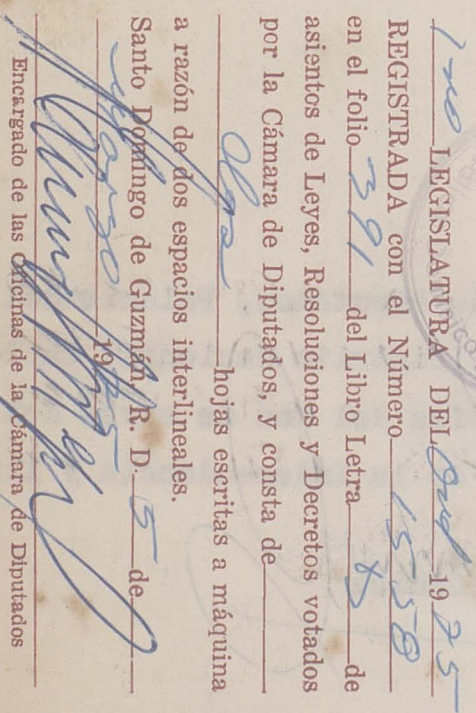 1ra LEGISLATURA DEL Ord 1975
REGISTRADA con el Número 1558
en el folio 391 del Libro Letra de
asientos de Leyes, Resoluciones y Decretos votados
por la Cámara de Diputados, y consta de
hojas escritas a máquina
a razón de dos espacios interlineales.
Santo Domingo de Guzmán, R. D. 5 de
Marzo 1975
Encargado de las Oficinas de la Cámara de Diputados